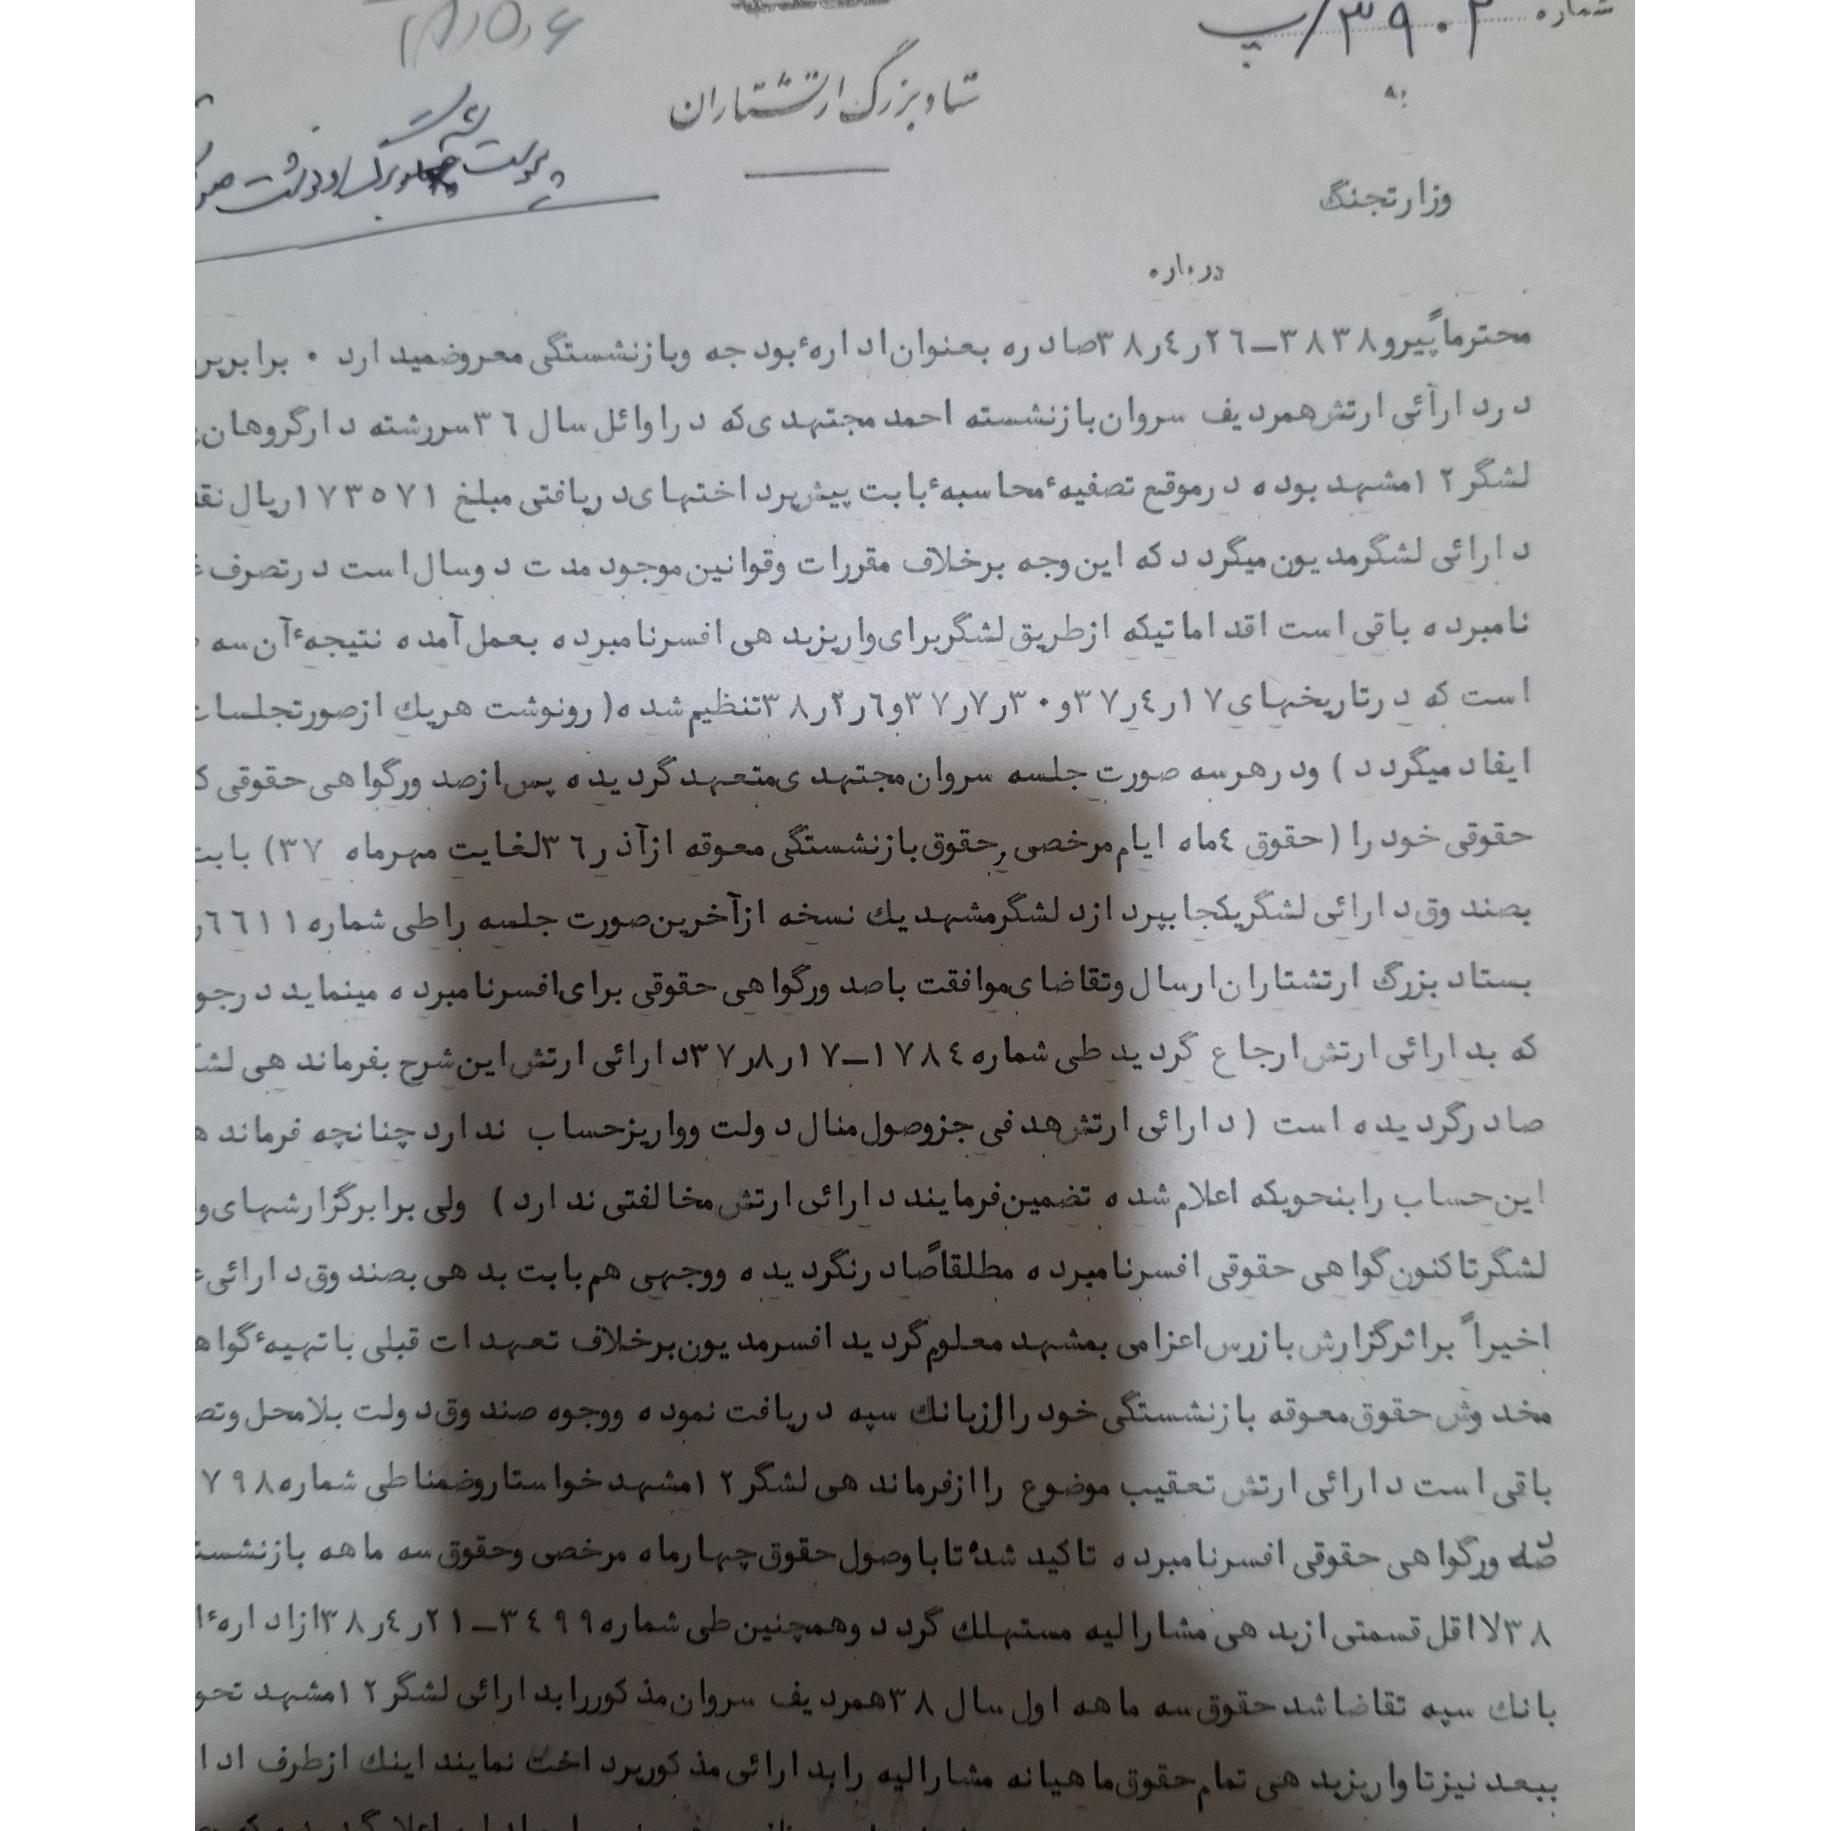 شماره ۳۹۰۲/پ
۱۸٫۵٫۶
ستاد بزرگ ارتشتاران
به
پیوست
وزارتجنگ
درباره
محترماً پیرو ۳۸۳۸ـ۲٦ر٤ر۳۸ صادره بعنوان اداره بودجه وبازنشستگی معروضمیدارد ۰ برابر
در دارآئی ارتش همردیف سروان بازنشسته احمد مجتهدی که دراوائل سال ۳٦ سررشته دار گروهان
لشگر ۱۲ مشهد بوده درموقع تصفیهٔ محاسبهٔ بابت پیش پرداختهای دریافتی مبلغ ۱۷۳۵۷۱ ریال
دارائی لشگر مدیون میگردد که این وجه برخلاف مقررات وقوانین موجود مدت دوسال است در تصرف
نامبرده باقی است اقداماتیکه ازطریق لشگر برای واریز بدهی افسر نامبرده بعمل آمده نتیجهٔ آن سه
است که درتاریخهای ۱۷ر٤ر۳۷ و ۳۰ر۷ر۳۷ و ٦ر۲ر۳۸ تنظیم شده (رونوشت هریك ازصورتجلسات
ایفاد میگردد ) ودر هرسه صورت جلسه سروان مجتهدی متعهد گردیده پس ازصدور گواهی حقوقی
حقوقی خود را (حقوق ٤ ماه ایام مرخصی , حقوق بازنشستگی معوقه ازآذر ۳٦ لغایت مهرماه ۳۷) بابت
بصندوق دارائی لشگر یکجا بپردازد لشگر مشهد یك نسخه ازآخرین صورت جلسه را طی شماره ٦٦۱۱ر
بستاد بزرگ ارتشتاران ارسال وتقاضای موافقت باصدور گواهی حقوقی برای افسر نامبرده مینماید در
که بدارائی ارتش ارجاع گردید طی شماره ۱۷۸٤ـ۱۷ر۸ر۳۷ دارائی ارتش این شرح بفرماندهی
صادر گردیده است (دارائی ارتش هدفی جز وصول منال دولت وواریز حساب ندارد چنانچه
این حساب را بنحویکه اعلام شده تضمین فرمایند دارائی ارتش مخالفتی ندارد ) ولی برابر گزارشهای
لشگر تاکنون گواهی حقوقی افسر نامبرده مطلقاً صادر نگردیده ووجهی هم بابت بدهی بصندوق دارائی
اخیراً براثر گزارش بازرس اعزامی بمشهد معلوم گردید افسر مدیون برخلاف تعهدات قبلی با تهیهٔ
مخدوش حقوق معوقه بازنشستگی خود را ازبانك سپه دریافت نموده ووجوه صندوق دولت بلامحل
باقی است دارائی ارتش تعقیب موضوع را ازفرماندهی لشگر ۱۲ مشهد خواستار وضمنا طی شماره ۷۹۸
صدور گواهی حقوقی افسر نامبرده تاکید شده تا با وصول حقوق چهارماه مرخصی وحقوق سه ماهه
۳۸ لااقل قسمتی ازبدهی مشارالیه مستهلك گردد وهمچنین طی شماره ۳٤۹۹ـ۲۱ر٤ر۳۸ ازادارهٔ
بانك سپه تقاضا شد حقوق سه ماهه اول سال ۳۸ همردیف سروان مذکور را بدارائی لشگر ۱۲ مشهد
ببعد نیز تا واریز بدهی تمام حقوق ماهیانه مشارالیه را بدارائی مذکور پرداخت نمایند اینك ازطرف